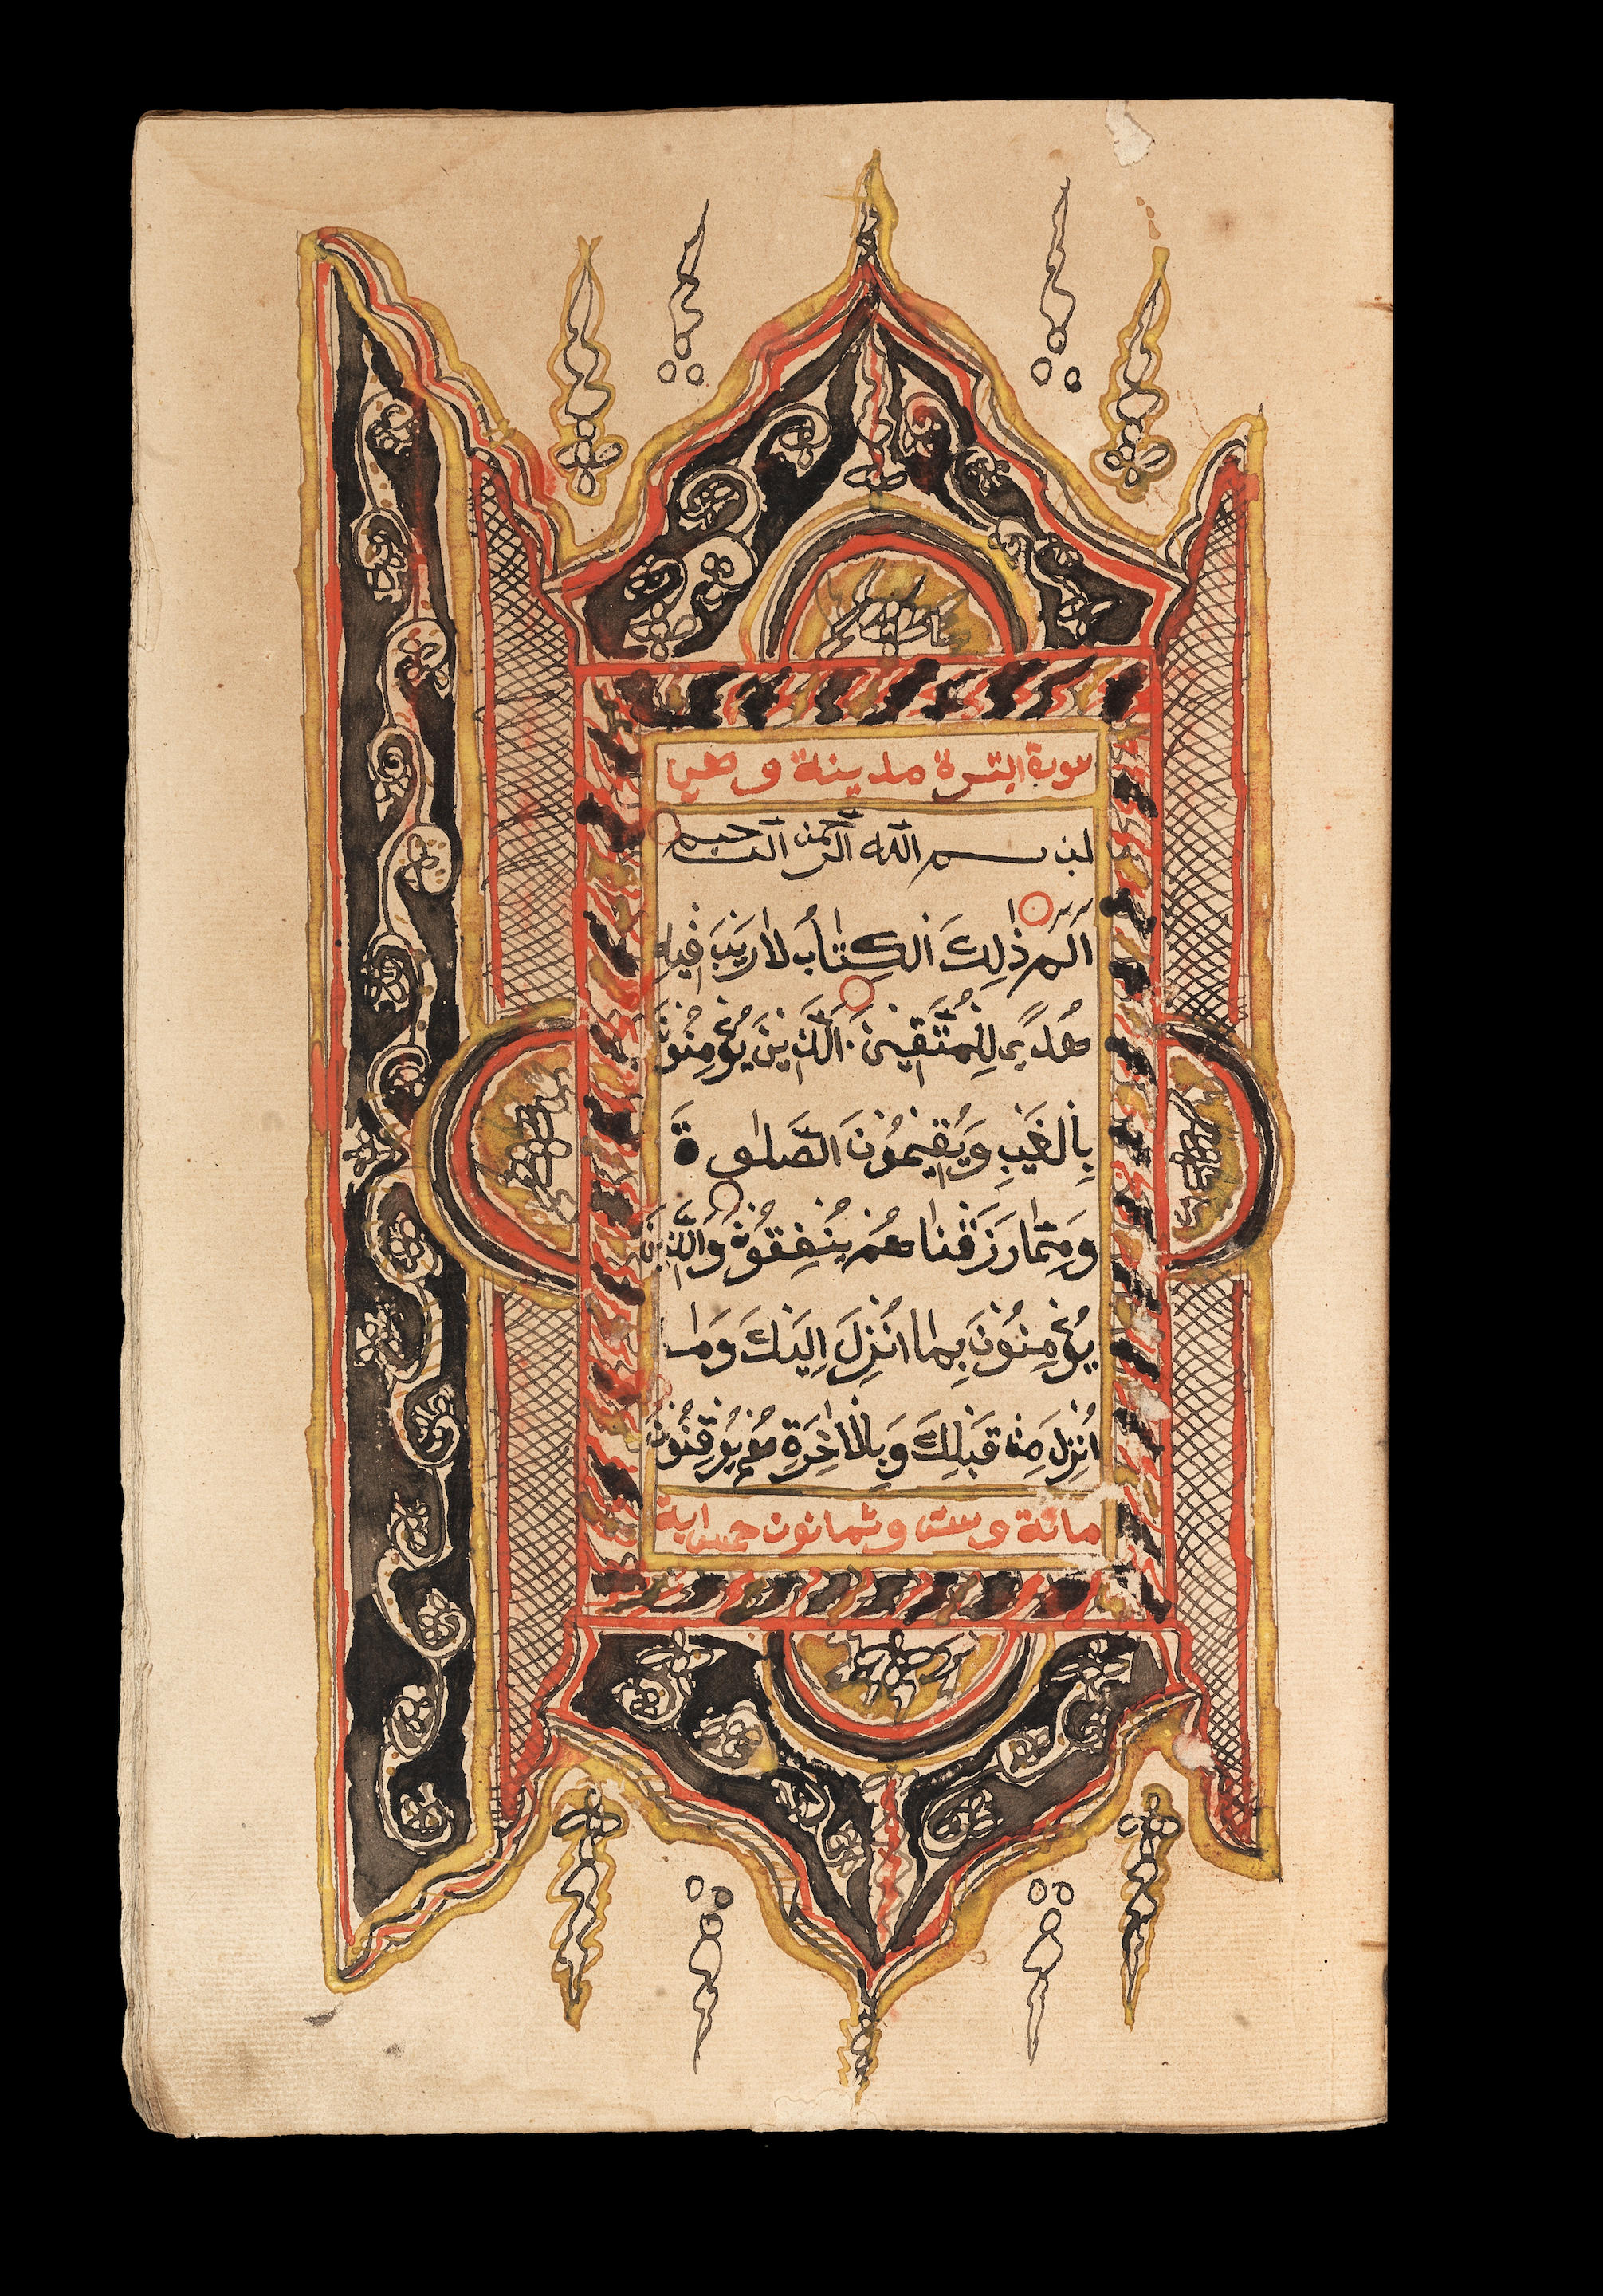 سورة البقرة مدينة وهي
بسم الله الرحمن الرحيم
الٓمٓ ذٰلِكَ الْكِتٰابُ لٰا رَيْبَ فِيْهِ
هُدًى لِلْمُتَّقِيْنَ اَلَّذِيْنَ يُؤْمِنُوْنَ
بِالْغَيْبِ وَيُقِيْمُوْنَ الصَّلٰوةَ
وَمِمَّا رَزَقْنٰاهُمْ يُنْفِقُوْنَ وَالَّذِيْنَ
يُؤْمِنُوْنَ بِمٰا اُنْزِلَ اِلَيْكَ وَمٰا
اُنْزِلَ مِنْ قَبْلِكَ وَبِالْاٰخِرَةِ هُمْ يُوْقِنُوْنَ
مائة وست وثمانون خمس اية